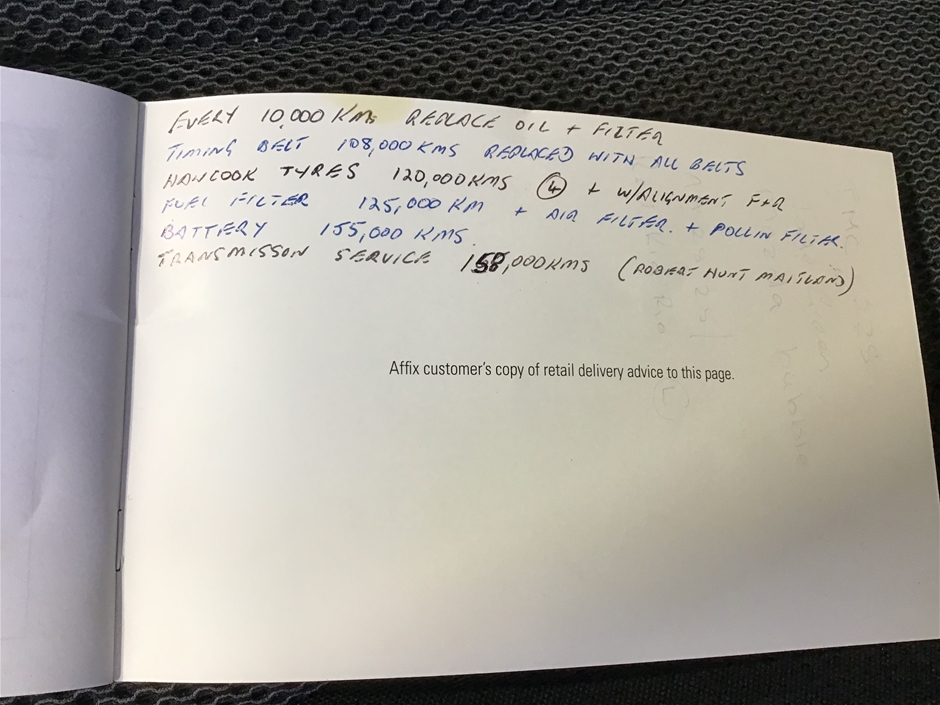 EVERY 10,000 KMs REPLACE OIL + FILTER
TIMING BELT 108,000 KMS REPLACED WITH ALL BELTS
HANCOOK TYRES 120,000 KMS (4) + W/ALIGNMENT F+R
FUEL FILTER 125,000 KM + AIR FILTER. + POLLIN FILTER.
BATTERY 155,000 KMS.
TRANSMISSON SERVICE 158,000 KMS (ROBERT HUNT MAITLAND)
Affix customer's copy of retail delivery advice to this page.